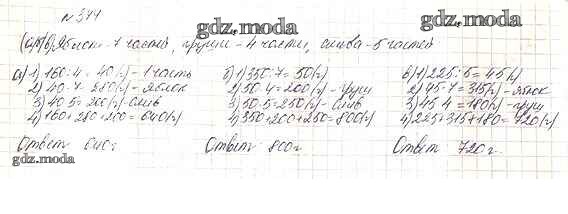 № 374
gdz.moda
gdz.moda
(а,б,в) Яблок - 7 частей, груши - 4 части, слива - 5 частей
а) 1) 160:4 = 40(г) - 1 часть
2) 40·7 = 280(г) - яблок
3) 40·5 = 200(г) - слив
4) 160 + 280 + 200 = 640(г)
Ответ 640 г.
gdz.moda
б) 1) 350:7 = 50(г)
2) 50·4 = 200(г) - груш
3) 50·5 = 250(г) - слив
4) 350 + 200 + 250 = 800(г)
Ответ 800 г.
в) 1) 225:5 = 45(г)
2) 45·7 = 315(г) - яблок
3) 45·4 = 180(г) - груш
4) 225 + 315 + 180 = 720(г)
Ответ 720 г.